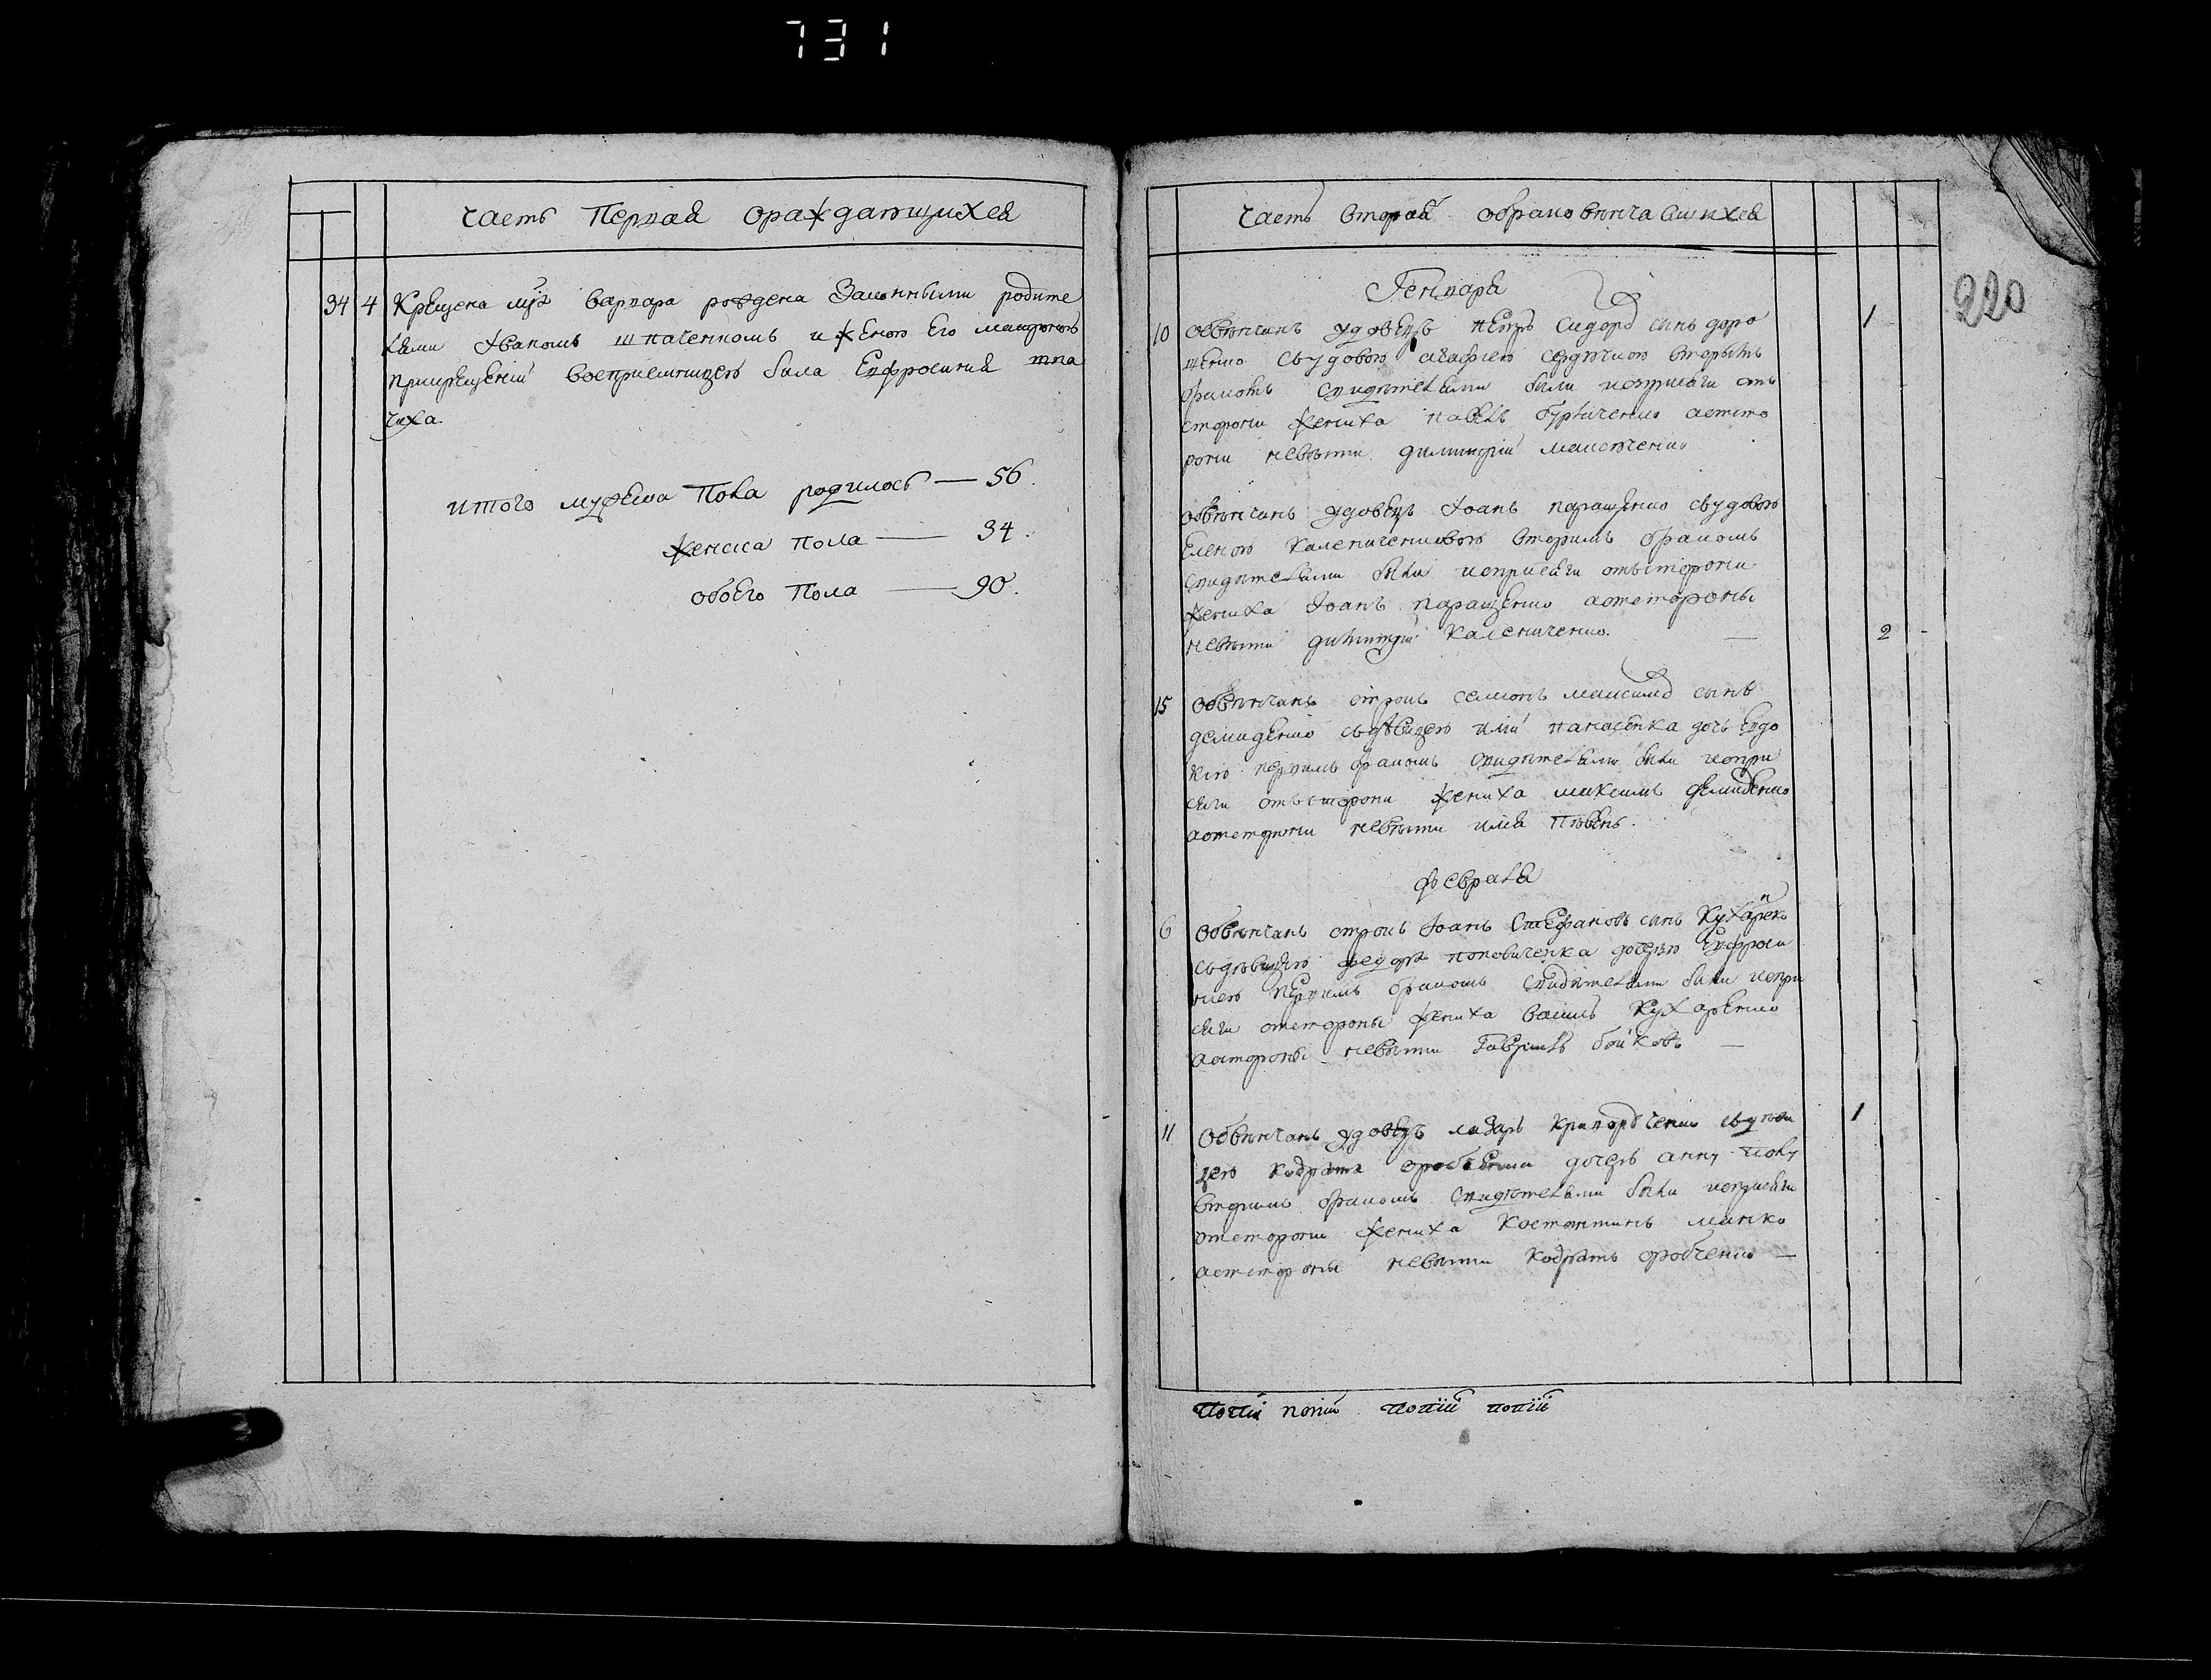 731
часть Первая ораждающихся
34 4 Крещена младенца варвара рождена Законными родите
лями Иваномъ шпаченкомъ и женою Его матроною
прикрещеніи восприемницею била Ефросинія шпа
чиха.
итого мужеска Пола родилось — 56.
женска пола — 34.
обоего Пола — 90.
часть вторая обракосочетавшихся
220
Генваря
10 обвѣнчанъ удовецъ петръ Сидоровъ сынъ доро
шенко съудовою агафіею вторымъ 1
бракомъ свидѣтелями били исприсяги отъ
стороны жениха павелъ асъсто
роны невѣсти димитрій
обвѣнчанъ удовецъ Іоанъ паращенко съудовою
Еленою Калениченковою вторимъ бракомъ
свидѣтелями были исприсяги отъстороны
жениха Іоанъ паращенко аотстороны
невѣсти димитрій Каленниченко. — 2
15 обвѣнчанъ отрокъ семионъ максимовъ сынъ
демиденко съдѣвицею иліи панасенка дочь Евдо
кіею первимъ бракомъ свидѣтелями были испри
сяги отъстороны жениха максимъ демиденко
аотстороны невѣсти илія
февраля
6 обвѣнчанъ отрокъ Іоанъ Стефановъ сынъ Кухаренко
съдѣвицею федора поповиченка дочерью Ефроси
ниею первимъ бракомъ свидѣтелями были испри
сяги отстороны жениха василь Кухаренко
астороны невѣсти Гавріилъ бойковъ —
11 обвѣнчанъ удовецъ лазарь 1
цею Кодрата дочерь анну
вторимъ бракомъ свидѣтелями были исприсяги
отстороны жениха Костантинъ минко
аотстороны невѣсти Кодратъ —
попіи попіи попіи попіи